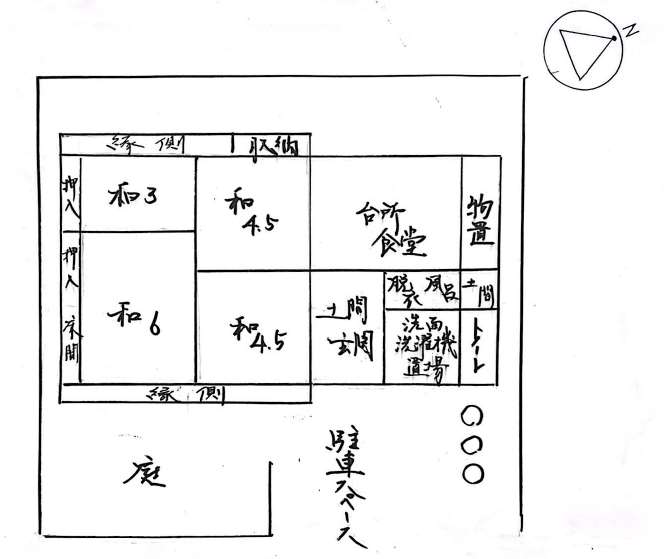 N
縁側
収納
押入
和3
和4.5
台所
食堂
物置
押入
床間
和6
和4.5
土間
玄関
脱衣
風呂
土間
洗面
洗濯機
置場
トイレ
縁側
庭
駐車スペース